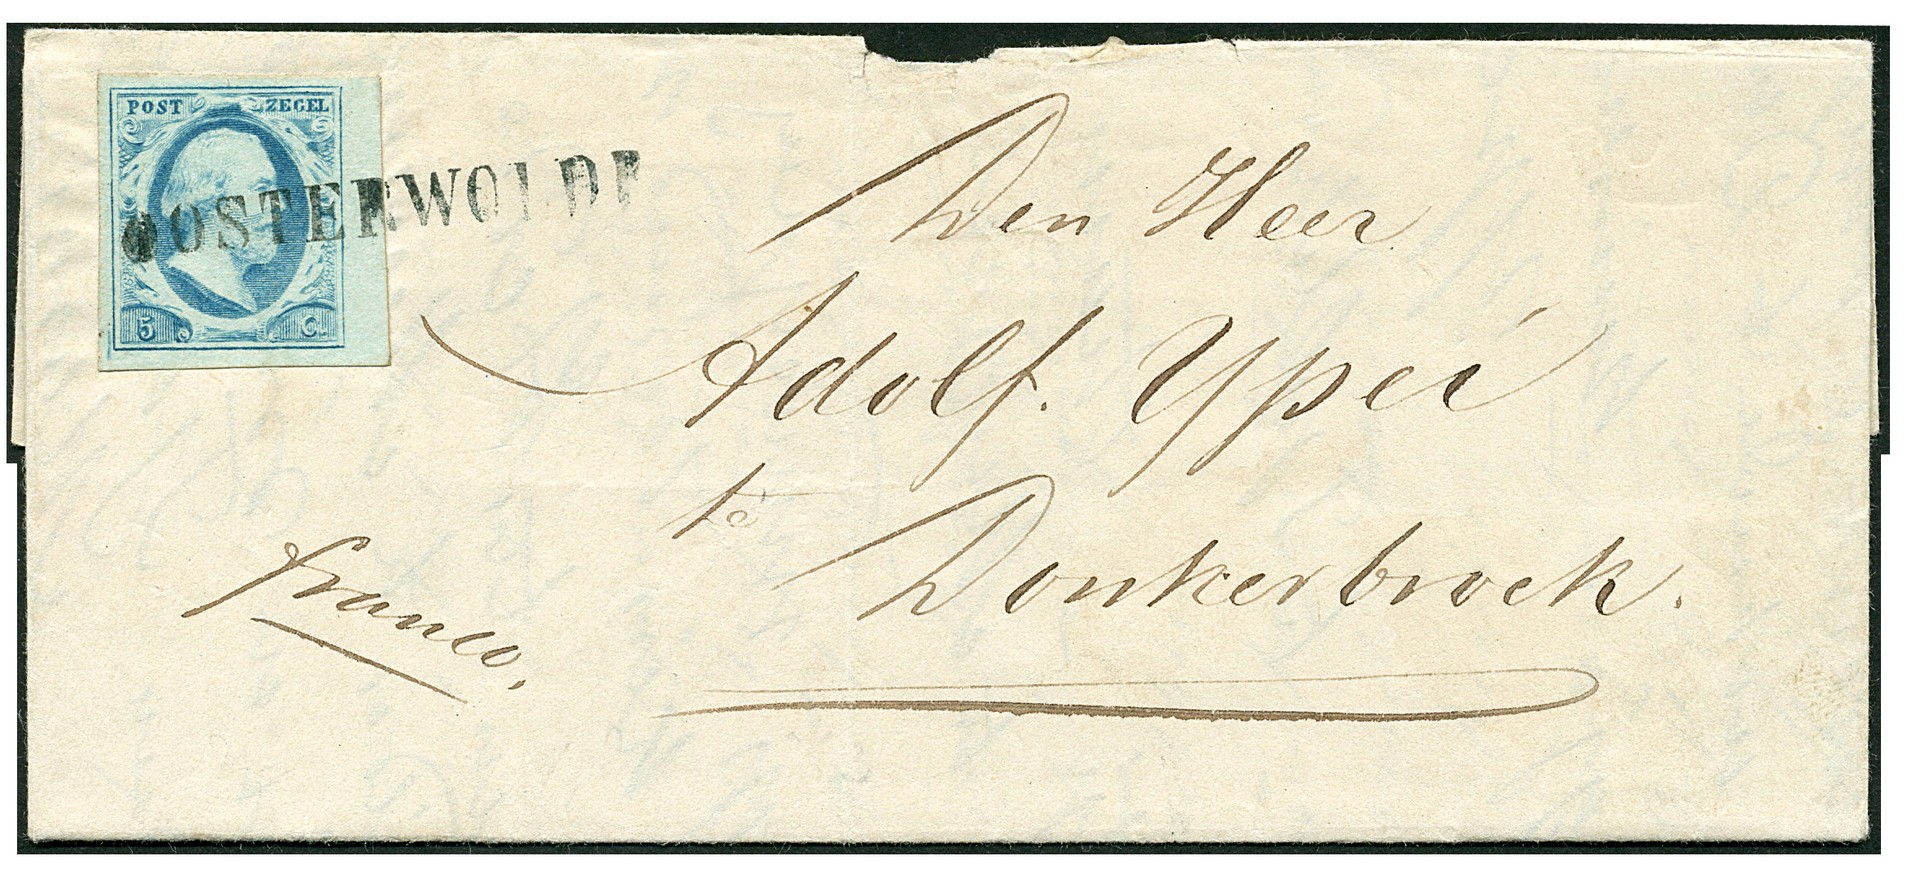 POST ZEGEL
OOSTERWOLDE
5 Ct.
Den Heer
Adolf. Ypeí
te
Donkerbroek.
franco.